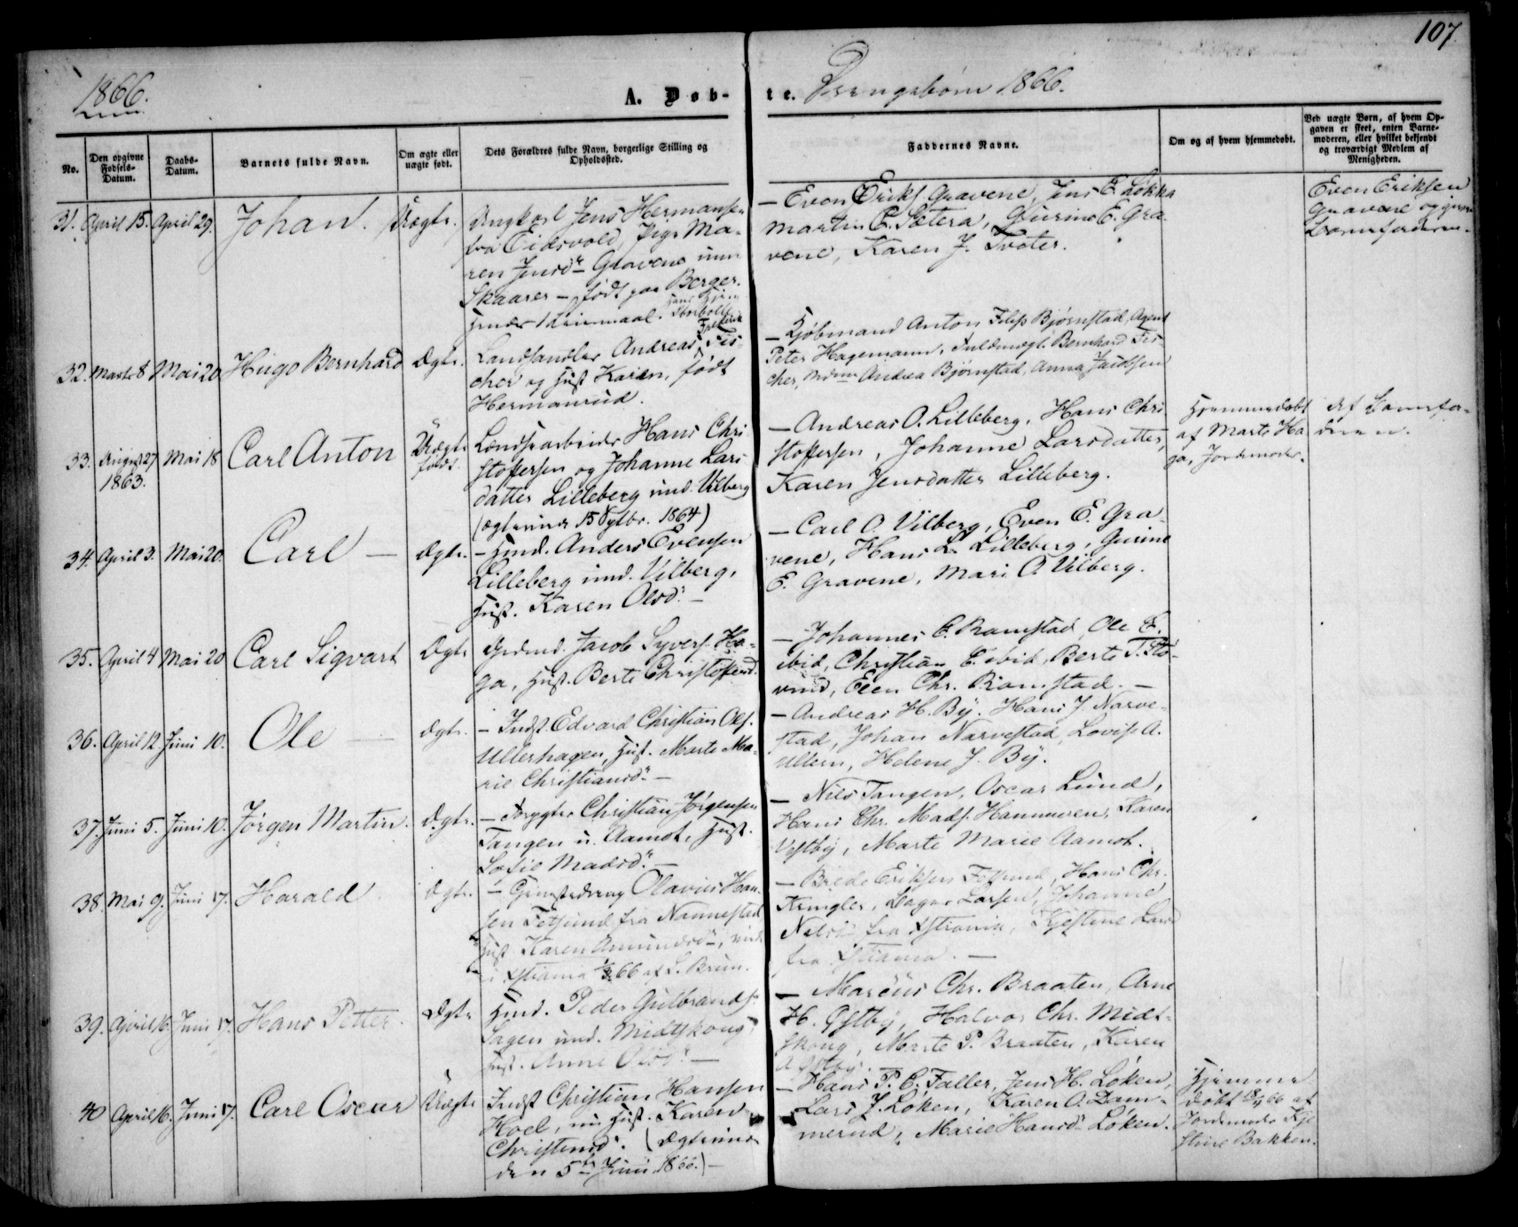 107
1866.
A. Døb-
te. Drengebørn 1866.
No.
Den opgivne Fødsels-Datum.
Daabs-Datum.
Barnets fulde Navn.
Om ægte eller uægte født.
Dets Forældres fulde Navn, borgerlige Stilling og Opholdssted.
Faddernes Navne.
Om og af hvem hjemmedøbt.
Ved uægte Børn, af hvem Opgaven er skeet, enten Barnemoderen, eller hvilket bekjendt og troværdigt Medlem af Menigheden.
31. April 15. April 29. Johan. Uægte.
Ungkarl Jens Hermansen
fra Eidsvold, Pige Ma-
ren Jensdr. Gravene
Skaarer - født paa Berger.
- Even Eriks. Gravene, Jens E. Løkka
Martin P. Sætera, Gurine E. Gra-
vene, Karen J. Tveter.
Even Eriksen
Gravene og
Barnefaderen.
32. Marts 8 Mai 20 Hugo Bernhard Ægte.
Landhandler Andreas Fis-
cher og Hust. Karen, født
Hermansrud.
- Kjøbmand Anton Filip Bjørnstad, Agent
Peter Hagemann, Fuldmægt. Bernhard Fis-
cher, Andrea Bjørnstad, Anna Jacobsen
33. August 27 1863. Mai 18 Carl Anton Uægte født.
Landsarbeider Hans Chri-
stoffersen og Johanne Lars-
datter Lilleberg und. Vilberg
(ægteviede 15 1864)
- Andreas O. Lilleberg, Hans Chri-
stoffersen, Johanne Larsdatter,
Karen Jensdatter Lilleberg.
Hjemmedøbt
af Marte Ha-
ga, Jordmoder.
af Barnefa-
deren.
34. April 2. Mai 20. Carl - Ægte.
- Husm. Anders Evensen
Lilleberg und. Vilberg,
Hust. Karen Olsdr. -
- Carl O. Vilberg, Even E. Gra-
vene, Hans L. Lilleberg, Gurine
E. Gravene, Mari O. Vilberg.
35. April 4 Mai 20 Carl Sigvart Ægte
Grdmd. Jacob Syvers. Ha-
ga, Hust. Berte Christoffersd.
- Johannes C. Ramstad, Ole C.
ibid, Christian C. ibid, Berte T. Sto-
vind, Elen Chr. Ramstad. -
36. April 12 Juni 10. Ole - Ægte.
- Indst. Edvard Christian Ols.
Ullershagen, Hust. Marte Ma-
rie Christiansdr. -
- Andreas H. By, Hans J. Narve-
stad, Johan Narvestad, Lovise A.
Ullern, Helene J. By.
37. Juni 5. Juni 10. Jørgen Martin. Ægte.
- Forpagter Christian Jørgensen
Tangen u. Aamot, Hust.
Sofie Madsdr. -
- Nils Tangen, Oscar Lund,
Hans Chr. Mads. Hammeren, Karen
Vestby, Marte Marie Aamot.
38. Mai 9. Juni 17. Harald Ægte.
- Olavius Han-
sen Fetsund fra Nannestad
Hust. Karen Amundsdr.,
i Xtiania 66 af L. Brun.
- Brede Eriksen Fetsund, Hans Chr.
Kringler, Dagne Larsen, Johanne
fra Xtiania, Kjestine
fra Xtiania. -
39. April 16. Juni 17. Hans Petter. Ægte
Husm. Peder Gulbrands.
Hagen und. Midtskoug,
Hust. Anne Olsdr. -
- Marcus Chr. Braaten, Arne
H. Østby, Halvor Chr. Midt-
skoug, Marte P. Braaten, Karen
A. Østby.
40 April 16. Juni 17. Carl Oscar Uægte
Indst. Christian Hansen
Hoel, nu Hust. Karen
Christensdr. (Ægteviede
den 5te Juni 1866.) -
- Hans P. C. Faller, Jens H. Løken,
Lars J. Løken, Karen A. Dam-
merud, Marie Hansdr. Løken.
Hjemme
døbt 66 af
Jordmoder Kje-
stine Bakken.